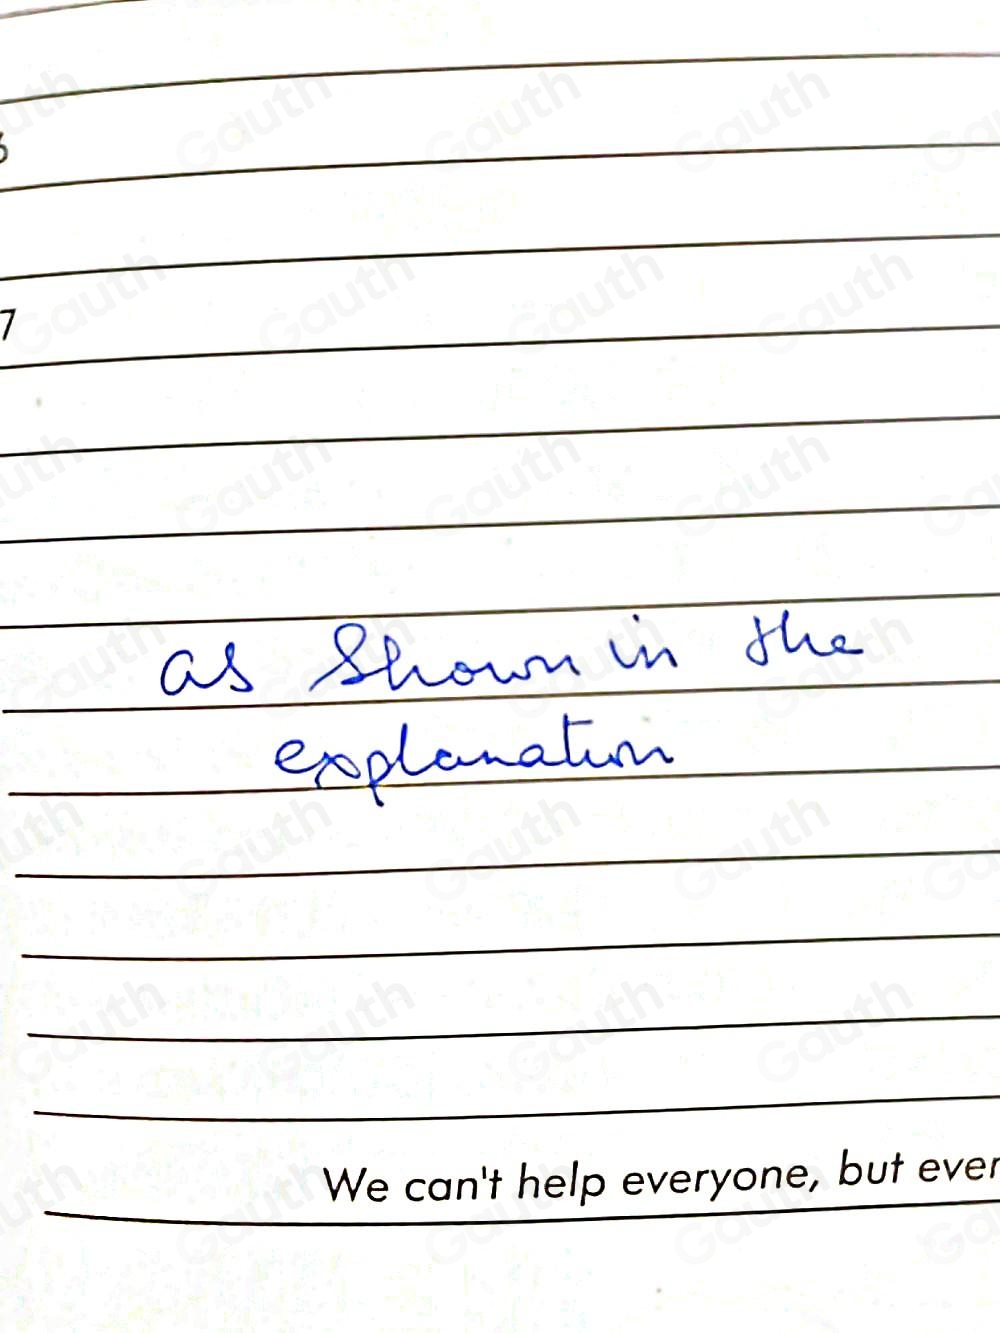 7
as Shown in the
explanation
We can't help everyone, but ever